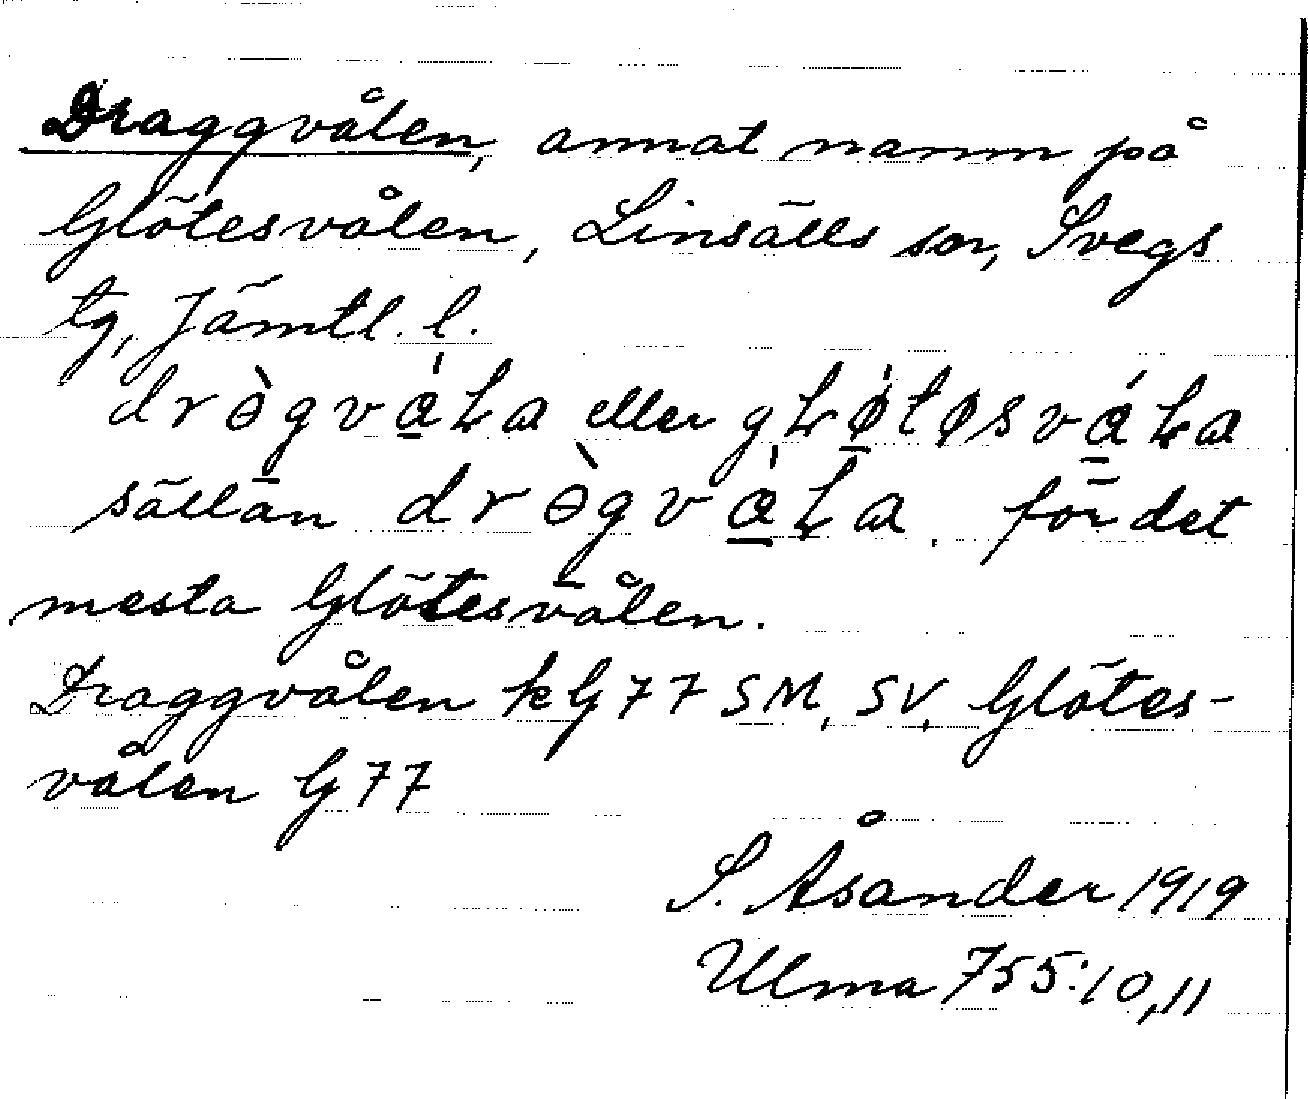 Draggvålen, annat namn på
Glötesvålen, Linsälls sn, Svegs
tg, Jämtl. l.
eller
sällan för det
mesta Glötesvålen.
Draggvålen kG77 SM, SV, Glötes-
vålen G77
S. Åsander 1919
Ulma 755:10,11